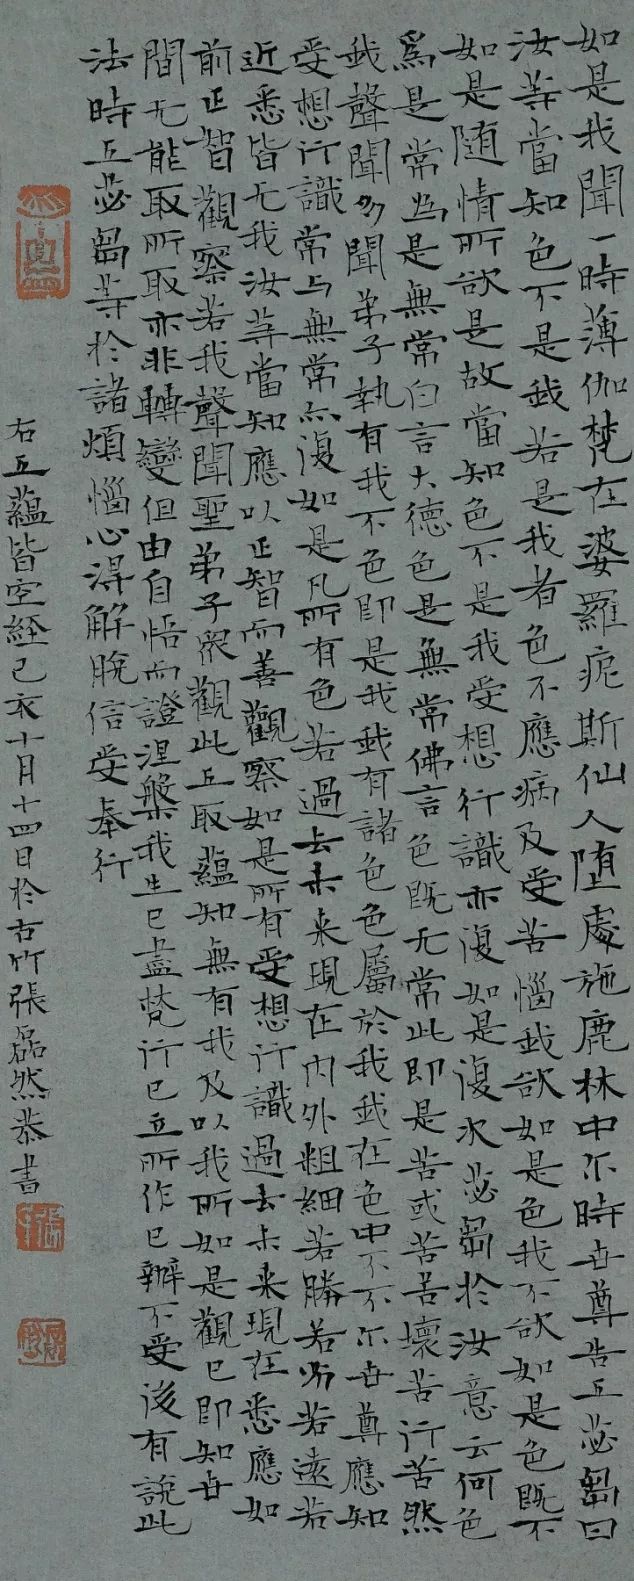 如是我聞一時薄伽梵在婆羅痆斯仙人墮處施鹿林中尒時世尊告五苾芻曰
汝等當知色不是我若是我者色不應病及受苦惱我欲如是色我不欲如是色既不
如是随情所欲是故當知色不是我受想行識亦復如是復次苾芻於汝意云何色
為是常為是無常白言大德色是無常佛言色既无常此即是苦或苦苦壞苦行苦然
我聲聞多聞弟子執有我不色即是我我有諸色色屬於我我在色中不不尒世尊應知
受想行識常与無常亦復如是凡所有色若過去未来現在内外粗細若勝若劣若遠若
近悉皆无我汝等當知應以正智而善觀察如是所有受想行識過去未来現在悉應如
前正智觀察若我聲聞聖弟子眾觀此五取蘊知無有我及以我所如是觀已即知世
間无能取所取亦非轉變但由自悟而證涅槃我生已盡梵行已立所作已辦不受後有說此
法時五苾芻等於諸煩惱心得解脫信受奉行
右五蘊皆空經己亥十月十四日於古竹張磊然恭書